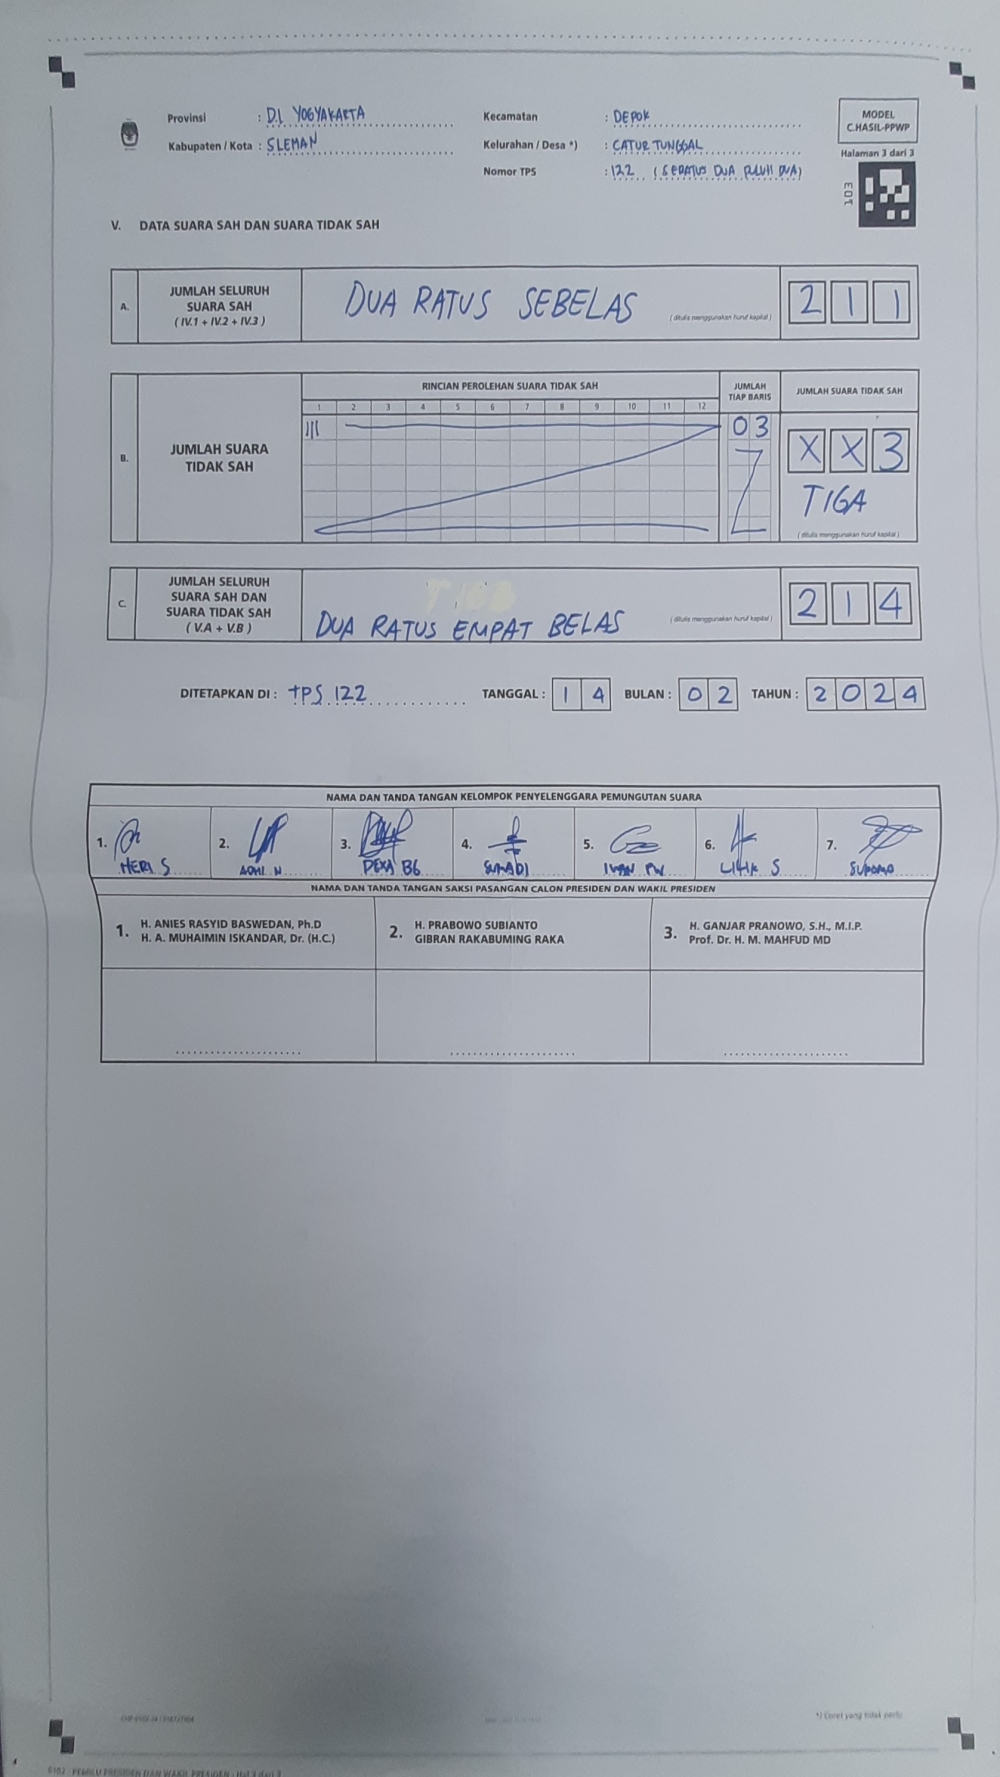 Provinsi : D.I. YOGYAKARTA
Kabupaten / Kota : SLEMAN
Kecamatan : DEPOK
Kelurahan / Desa *) : CATUR TUNGGAL
Nomor TPS : 122 (SERATUS DUA PULUH DUA)
MODEL
C.HASIL-PPWP
Halaman 3 dari 3
V. DATA SUARA SAH DAN SUARA TIDAK SAH
A. JUMLAH SELURUH
SUARA SAH
( IV.1 + IV.2 + IV.3 )
DUA RATUS SEBELAS
( ditulis menggunakan huruf kapital )
2 1 1
RINCIAN PEROLEHAN SUARA TIDAK SAH
JUMLAH
TIAP BARIS
JUMLAH SUARA TIDAK SAH
1 2 3 4 5 6 7 8 9 10 11 12
B. JUMLAH SUARA
TIDAK SAH
03
X X 3
TIGA
( ditulis menggunakan huruf kapital )
C. JUMLAH SELURUH
SUARA SAH DAN
SUARA TIDAK SAH
( V.A + V.B )
DUA RATUS EMPAT BELAS
( ditulis menggunakan huruf kapital )
2 1 4
DITETAPKAN DI : TPS 122 TANGGAL : 1 4 BULAN : 0 2 TAHUN : 2 0 2 4
NAMA DAN TANDA TANGAN KELOMPOK PENYELENGGARA PEMUNGUTAN SUARA
1. 2. 3. 4. 5. 6. 7.
HERI S
NAMA DAN TANDA TANGAN SAKSI PASANGAN CALON PRESIDEN DAN WAKIL PRESIDEN
1. H. ANIES RASYID BASWEDAN, Ph.D
H. A. MUHAIMIN ISKANDAR, Dr. (H.C.)
2. H. PRABOWO SUBIANTO
GIBRAN RAKABUMING RAKA
3. H. GANJAR PRANOWO, S.H., M.I.P.
Prof. Dr. H. M. MAHFUD MD
*) Coret yang tidak perlu